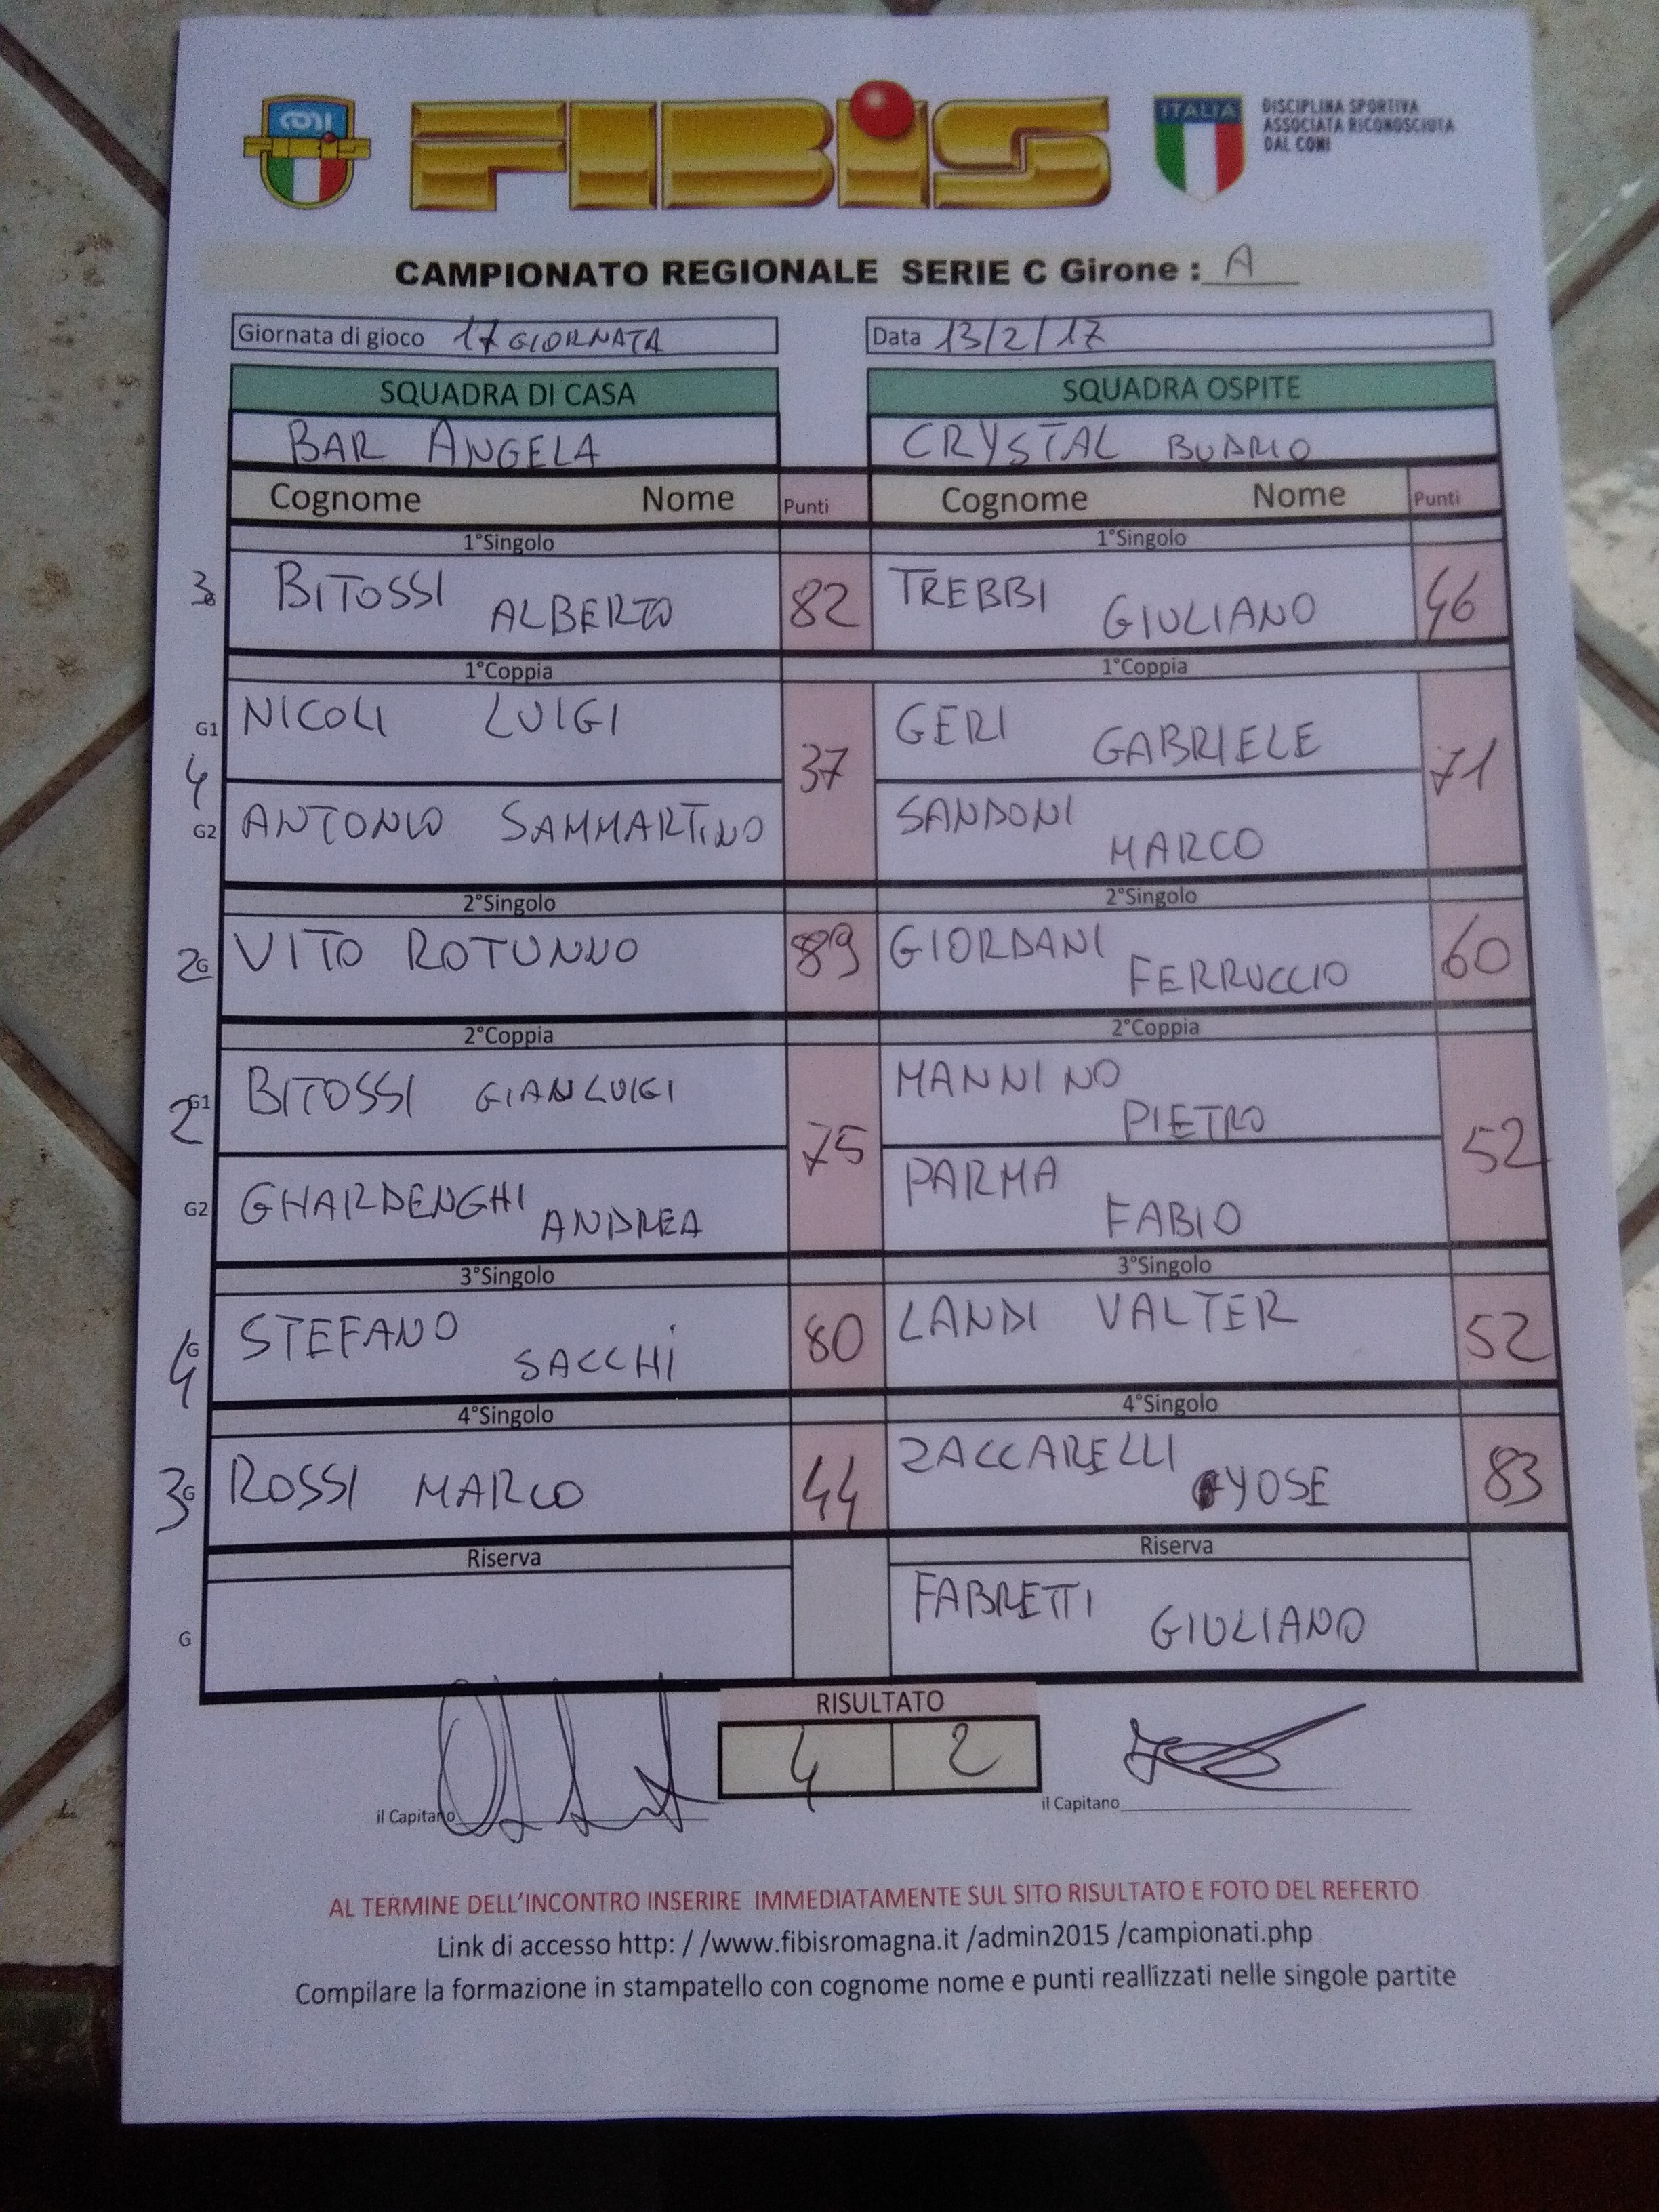 CONI
FIBiS
ITALIA
DISCIPLINA SPORTIVA
ASSOCIATA RICONOSCIUTA
DAL CONI
CAMPIONATO REGIONALE SERIE C Girone : A
Giornata di gioco 17 GIORNATA
Data 13/2/17
SQUADRA DI CASA
SQUADRA OSPITE
BAR ANGELA
CRYSTAL BUDRIO
Cognome Nome Punti
Cognome Nome Punti
1°Singolo
1°Singolo
3 BITOSSI ALBERTO 82
TREBBI GIULIANO 46
1°Coppia
1°Coppia
G1 NICOLI LUIGI
GERI GABRIELE
4 37
71
G2 ANTONIO SAMMARTINO
SANDONI MARCO
2°Singolo
2°Singolo
2 G VITO ROTUNNO 89
GIORDANI FERRUCCIO 60
2°Coppia
2°Coppia
2 G1 BITOSSI GIANLUIGI
MANNINO PIETRO
75
52
G2 GHARDENGHI ANDREA
PARMA FABIO
3°Singolo
3°Singolo
4 G STEFANO SACCHI 80
LANDI VALTER 52
4°Singolo
4°Singolo
3 G ROSSI MARCO 44
ZACCARELLI YOSE 83
Riserva
Riserva
G
FABRETTI GIULIANO
RISULTATO
4 2
il Capitano
il Capitano
AL TERMINE DELL'INCONTRO INSERIRE IMMEDIATAMENTE SUL SITO RISULTATO E FOTO DEL REFERTO
Link di accesso http: / /www.fibisromagna.it /admin2015 /campionati.php
Compilare la formazione in stampatello con cognome nome e punti reallizzati nelle singole partite